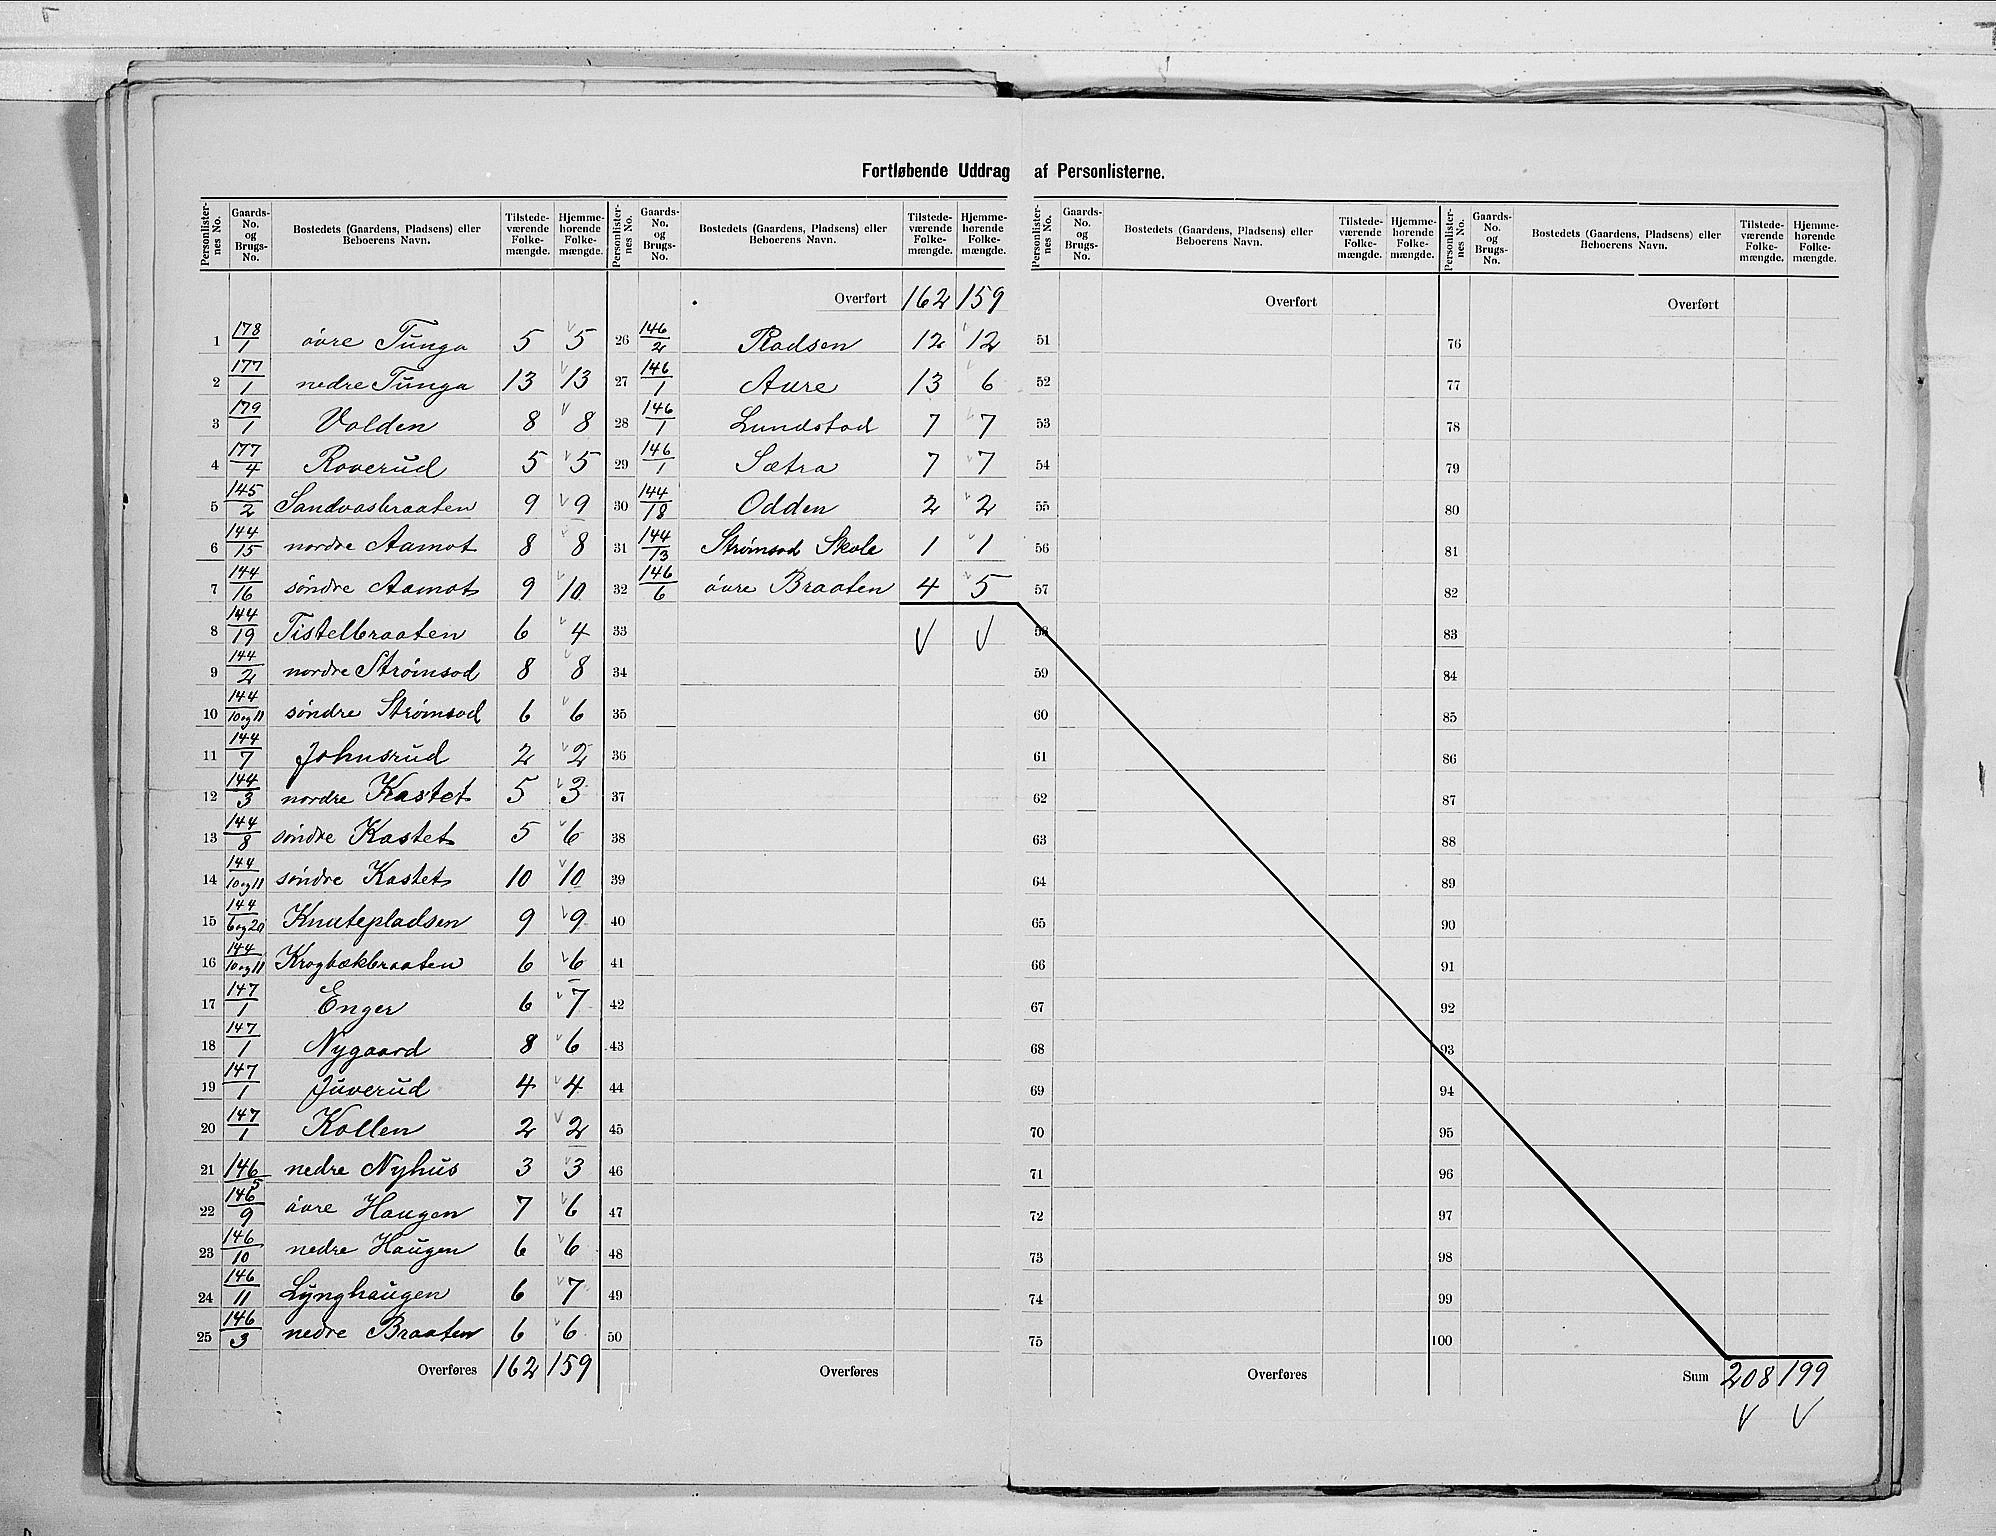 Fortløbende Uddrag af Personlisterne.
Personlister-nes No. Gaards-No. og Brugs-No. Bostedets (Gaardens, Pladsens) eller Beboerens Navn. Tilstede-værende Folke-mængde. Hjemme-hørende Folke-mængde.
1 178/1 övre Tunga 5 5
2 177/1 nedre Tunga 13 13
3 179/1 Volden 8 8
4 177/4 Roverud 5 5
5 145/2 Sandvasbraaten 9 9
6 144/15 nordre Aamot 8 8
7 144/16 söndre Aamot 9 10
8 144/19 Tistelbraaten 6 4
9 144/2 nordre Strømsod 8 8
10 144/10 og 11 söndre Strømsod 6 6
11 144/7 Johnsrud 2 2
12 144/3 nordre Kastet 5 3
13 144/8 söndre Kastet 5 6
14 144/10 og 11 söndre Kastet 10 10
15 144/6 og 20 Knutepladsen 9 9
16 144/10 og 11 Krogbækbraaten 6 6
17 147/1 Enger 6 7
18 147/1 Nygaard 8 6
19 147/1 Juverud 4 4
20 147/1 Kollen 2 2
21 146/5 nedre Nyhus 3 3
22 146/9 övre Haugen 7 6
23 146/10 nedre Haugen 6 6
24 146/11 Lynghaugen 6 7
25 146/3 nedre Braaten 6 6
Overføres 162 159
Personlister-nes No. Gaards-No. og Brugs-No. Bostedets (Gaardens, Pladsens) eller Beboerens Navn. Tilstede-værende Folke-mængde. Hjemme-hørende Folke-mængde.
Overført 162 159
26 146/2 Pladsen 12 12
27 146/1 Aure 13 6
28 146/1 Lundstad 7 7
29 146/1 Sætra 7 7
30 144/18 Odden 2 2
31 144/13 Strømsod Skole 1 1
32 146/6 övre Braaten 4 5
33
34
35
36
37
38
39
40
41
42
43
44
45
46
47
48
49
50
Overføres
Personlister-nes No. Gaards-No. og Brugs-No. Bostedets (Gaardens, Pladsens) eller Beboerens Navn. Tilstede-værende Folke-mængde. Hjemme-hørende Folke-mængde.
Overført
51
52
53
54
55
56
57
58
59
60
61
62
63
64
65
66
67
68
69
70
71
72
73
74
75
Overføres
Personlister-nes No. Gaards-No. og Brugs-No. Bostedets (Gaardens, Pladsens) eller Beboerens Navn. Tilstede-værende Folke-mængde. Hjemme-hørende Folke-mængde.
Overført
76
77
78
79
80
81
82
83
84
85
86
87
88
89
90
91
92
93
94
95
96
97
98
99
100
Sum 208 199